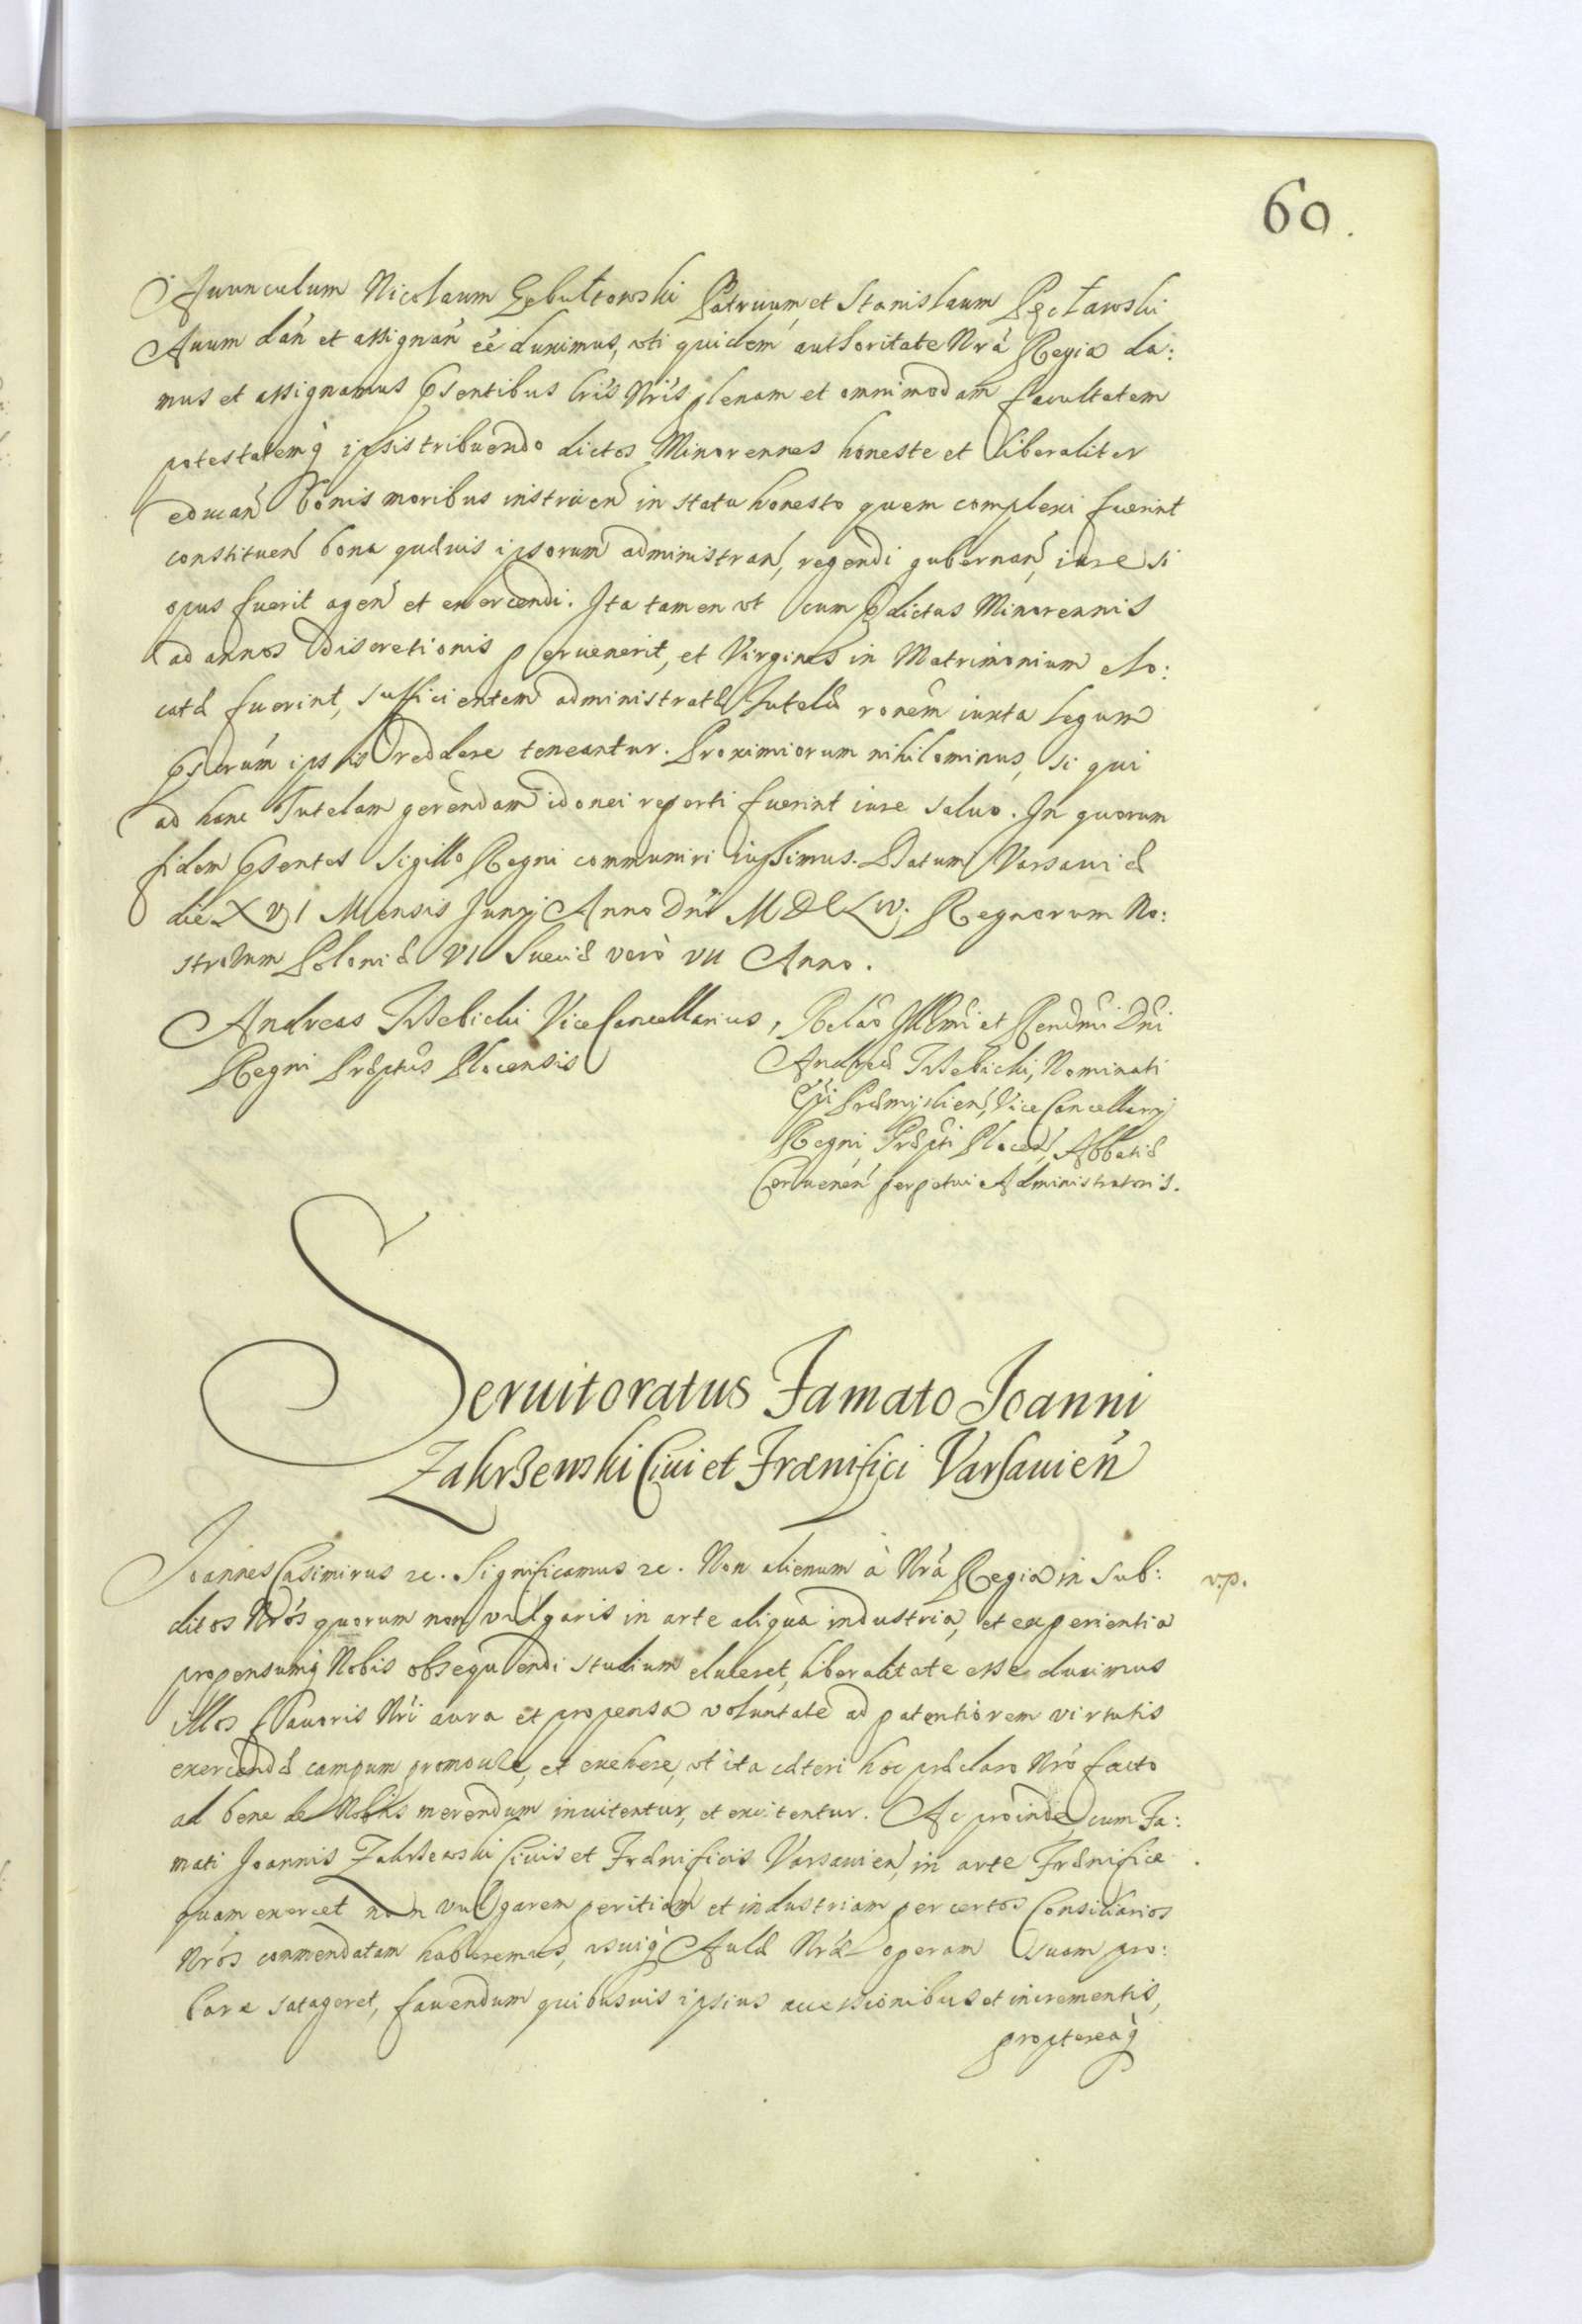 60.
Auunculum Nicolaum Gebułtowski Patruum et Stanislaum Pęcławski
Auum dań et assignań eē duximus, vti quidem authoritate Nrá Regia da:
mus et assignamus Psentibus lris Nris plenam et omnimodam facultatem
potestatemq̀ ipsis tribuendo dictos Minorennes honeste et liberaliter
educań bonis moribus instruen in statu honesto quem complexi fuerint
constituen bona quævis ipsorum administran, regendi gubernan, iure si
opus fuerit agen et exercendi. Ita tamen vt cum Pdictus Minorennis
ad annos discretionis peruenerit, et Virgines in Matrimonium elo:
catæ fuerint, sufficientem administratæ Tutelæ ronem iuxta legum
Pscrum ipsis reddere teneantur. Proximiorum nihilominus, si qui
ad hanc Tutelam gerendam idonei reperti fuerint iure saluo. In quorum
fidem Psentes Sigillo Regni communiri iussimus. Datum Varsauiæ
die XVI Mensis Junij Anno Dni MDCLIV. Regnorum No:
strorum Poloniæ VI Sueciæ verò VII Anno.
Andreas Trzebicki Vice Cancellarius,
Regni Præptus Plocensis
Relão Illmi et Rendmi Dni
Andreæ Trzebicki, Nominati
Epi Præmislien, Vice Cancellarij
Regni, Præpti Plocen, Abbatiæ
Czeruenen perpetui Administratoris.
Seruitoratus Famato Joanni
Zakrzewski Ciui et Frænifici Varsauień
Joannes Casimirus &c. Significamus &c. Non alienum à Nrá Regia in Sub: v.p.
ditos Nrós quorum non vulgaris in arte aliqua industria, et experientia
propensumq̀ Nobis obsequendi studium eluceret, liberalitate esse duximus
illos fauoris Nri aura et propensa voluntate ad patentiorem virtutis
exercendæ campum promouere, et euehere, vt ita cæteri hoc præclaro Nró facto
ad bene de Nobis merendum inuitentur, et excitentur. Ac proinde, cum Fa:
mati Joannis Zakrzewski Ciuis et Frænificis Varsauien, in arte Frænifice
quam exercet non vulgarem peritiam et industriam per certos Consiliarios
Nrós commendatam haberemus, vsuiq̀ Aulæ Nræ operam suam pro:
bare satageret, fauendum quibusuis ipsius accessionibus et incrementis,
proptereaq̀